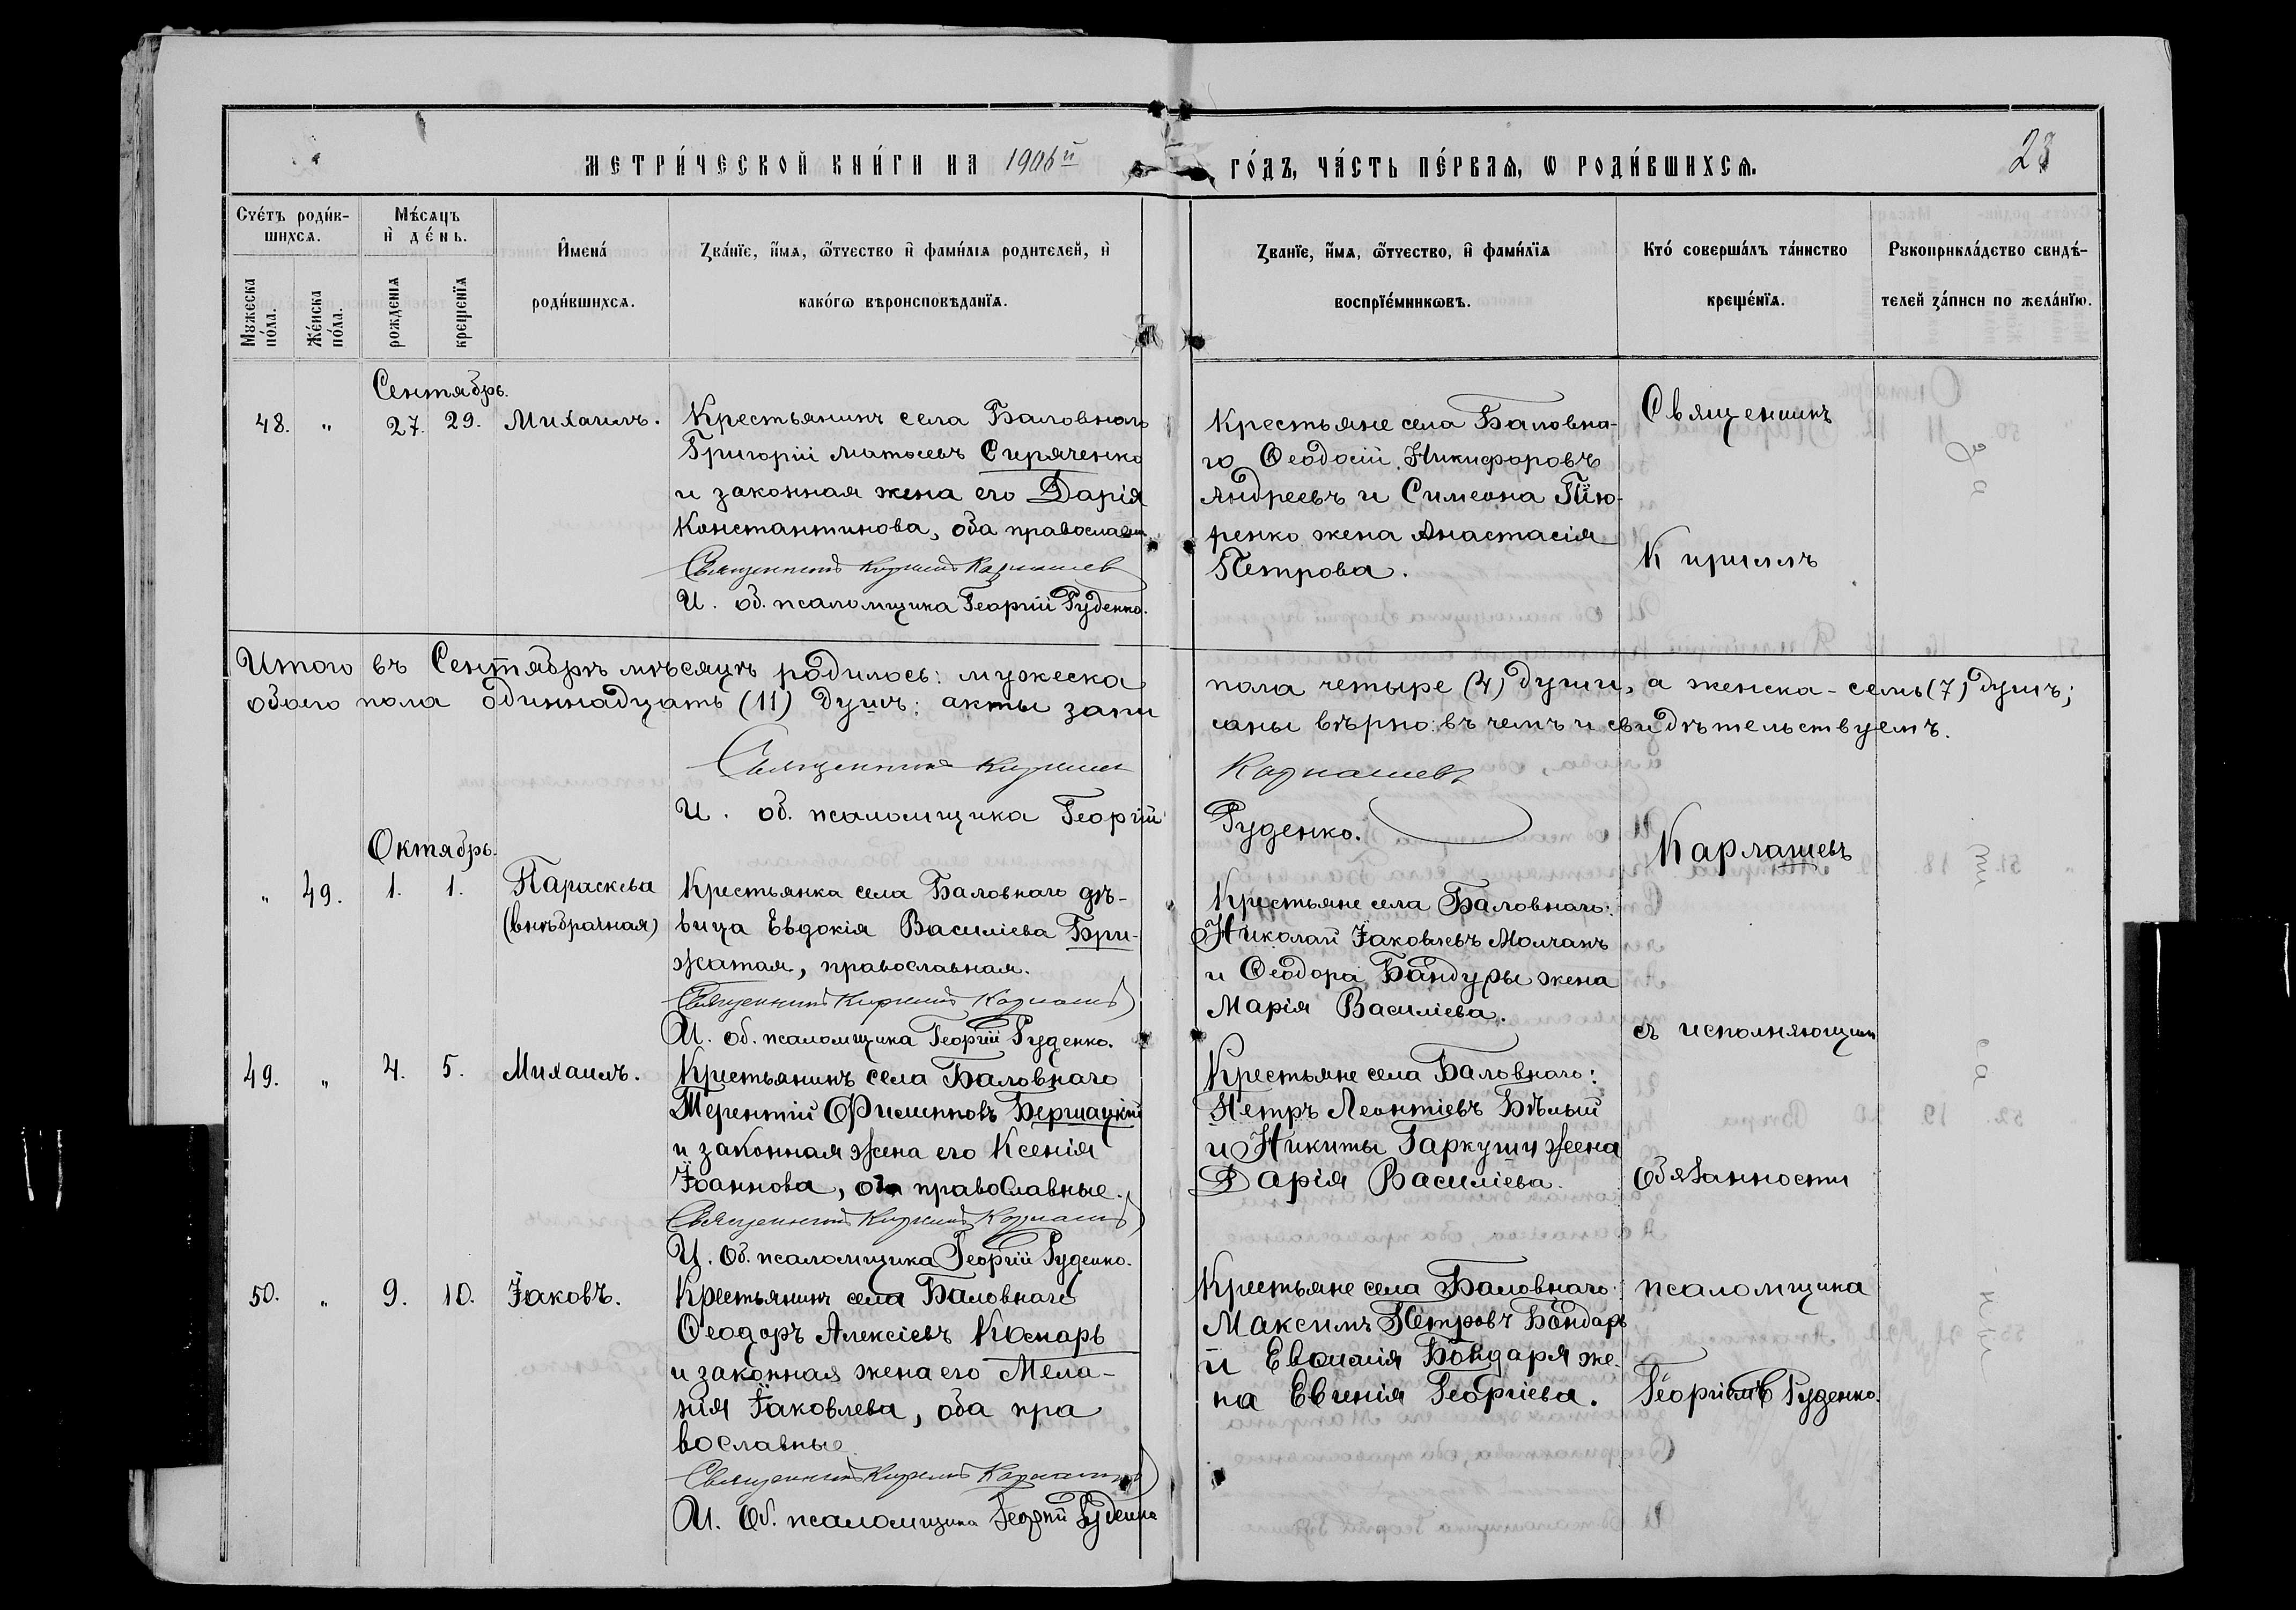 МЕТРИ́ЧЕСКОЙ КНИ́ГИ НА 1906й ГО́ДЪ, ЧА́СТЬ ПЕ́РВАѦ, Ѡ РОДИ́ВШИХСѦ.
23
Счє́тъ роди́в-
шихсѧ.
Мѣ́сѧцъ
и҆ де́нь.
Мужеска по́ла.
Же́нска по́ла.
рожденїѧ
крещенїѧ
И҆мена́
роди́вшихсѧ.
Зва́нїе, и҆́мѧ, ѻ҆́тчество и҆ фами́лїѧ родителей, и҆
како́гѡ вѣроисповѣданїѧ.
Зва́нїе, и҆́мѧ, ѻ҆́тчество, и҆ фами́лїѧ
воспрїе́мникѡвъ.
Кто́ соверша́лъ та́инство
креще́нїѧ.
Рукоприкла́дство свидѣ́-
телей за́писи по жела́нїю.
Сентябрь.
48. " 27. 29. Михаилъ.
Крестьянинъ села Баловнаго
Григорій Матѳеевъ Сиряченко
и законная жена его Дарія
Константинова, оба православн.
Священникъ Кириллъ Карлашев
И. об. псаломщика Георгій Руденко.
Крестьяне села Баловна-
го Ѳеодосій Никифоровъ
Андреевъ и Симеона Тю-
ренко жена Анастасія
Петрова.
Священникъ
Кириллъ
Итого въ Сентябрѣ мѣсяцѣ родилось: мужеска пола четыре (4) души, а женска - семь (7) душъ;
обоего пола одиннадцать (11) душъ: акты запи саны вѣрно: въ чемъ и свидѣтельствуемъ.
Священникъ Кирилл Карлашевъ
И. об. псаломщика Георгій Руденко.
Карлашевъ
Октябрь.
" 49. 1. 1. Параскева
(внѣбрачная)
Крестьянка села Баловнаго дѣ-
вица Евдокія Василіева Бри-
жатая, православная.
Священникъ Кириллъ Карлашев
И. об. псаломщика Георгій Руденко.
Крестьяне села Баловнаго:
Николай Іаковлевъ Молчанъ
и Ѳеодора Бандуры жена
Марія Василіева.
съ исполняющим
49. " 4. 5. Михаилъ.
Крестьянинъ села Баловнаго
Терентій Филипповъ Бершацкій
и законная жена его Ксенія
Іоаннова, оба православные.
Священникъ Кириллъ Карлашев
И. Об. псаломщика Георгій Руденко.
Крестьяне села Баловнаго:
Петръ Леонтіевъ Бѣлый
и Никиты Гаркуши жена
Дарія Василіева.
обязанности
50. " 9. 10. Іаковъ.
Крестьянинъ села Баловнаго
Ѳеодоръ Алексіевъ
и законная жена его Мела-
нія Іаковлева, оба пра
вославные
Священникъ Кириллъ Карлашев
И. Об. псаломщика Георгій Руденко
Крестьяне села Баловнаго:
Максимъ Петровъ Бондарь
и Бондаря же-
на Евгенія Георгіева.
псаломщика
Георгіемъ Руденко.